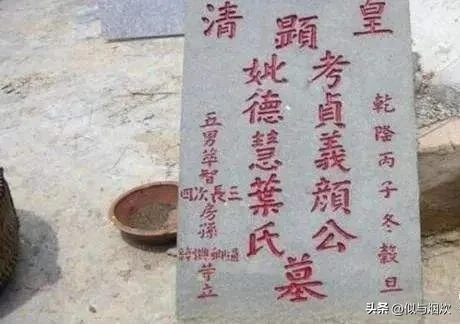 皇清
乾隆丙子冬穀旦
顯
考貞義顏公
妣德慧葉氏
墓
五男萃智
三長次四
房孫
等立
头条 @似与烟炊